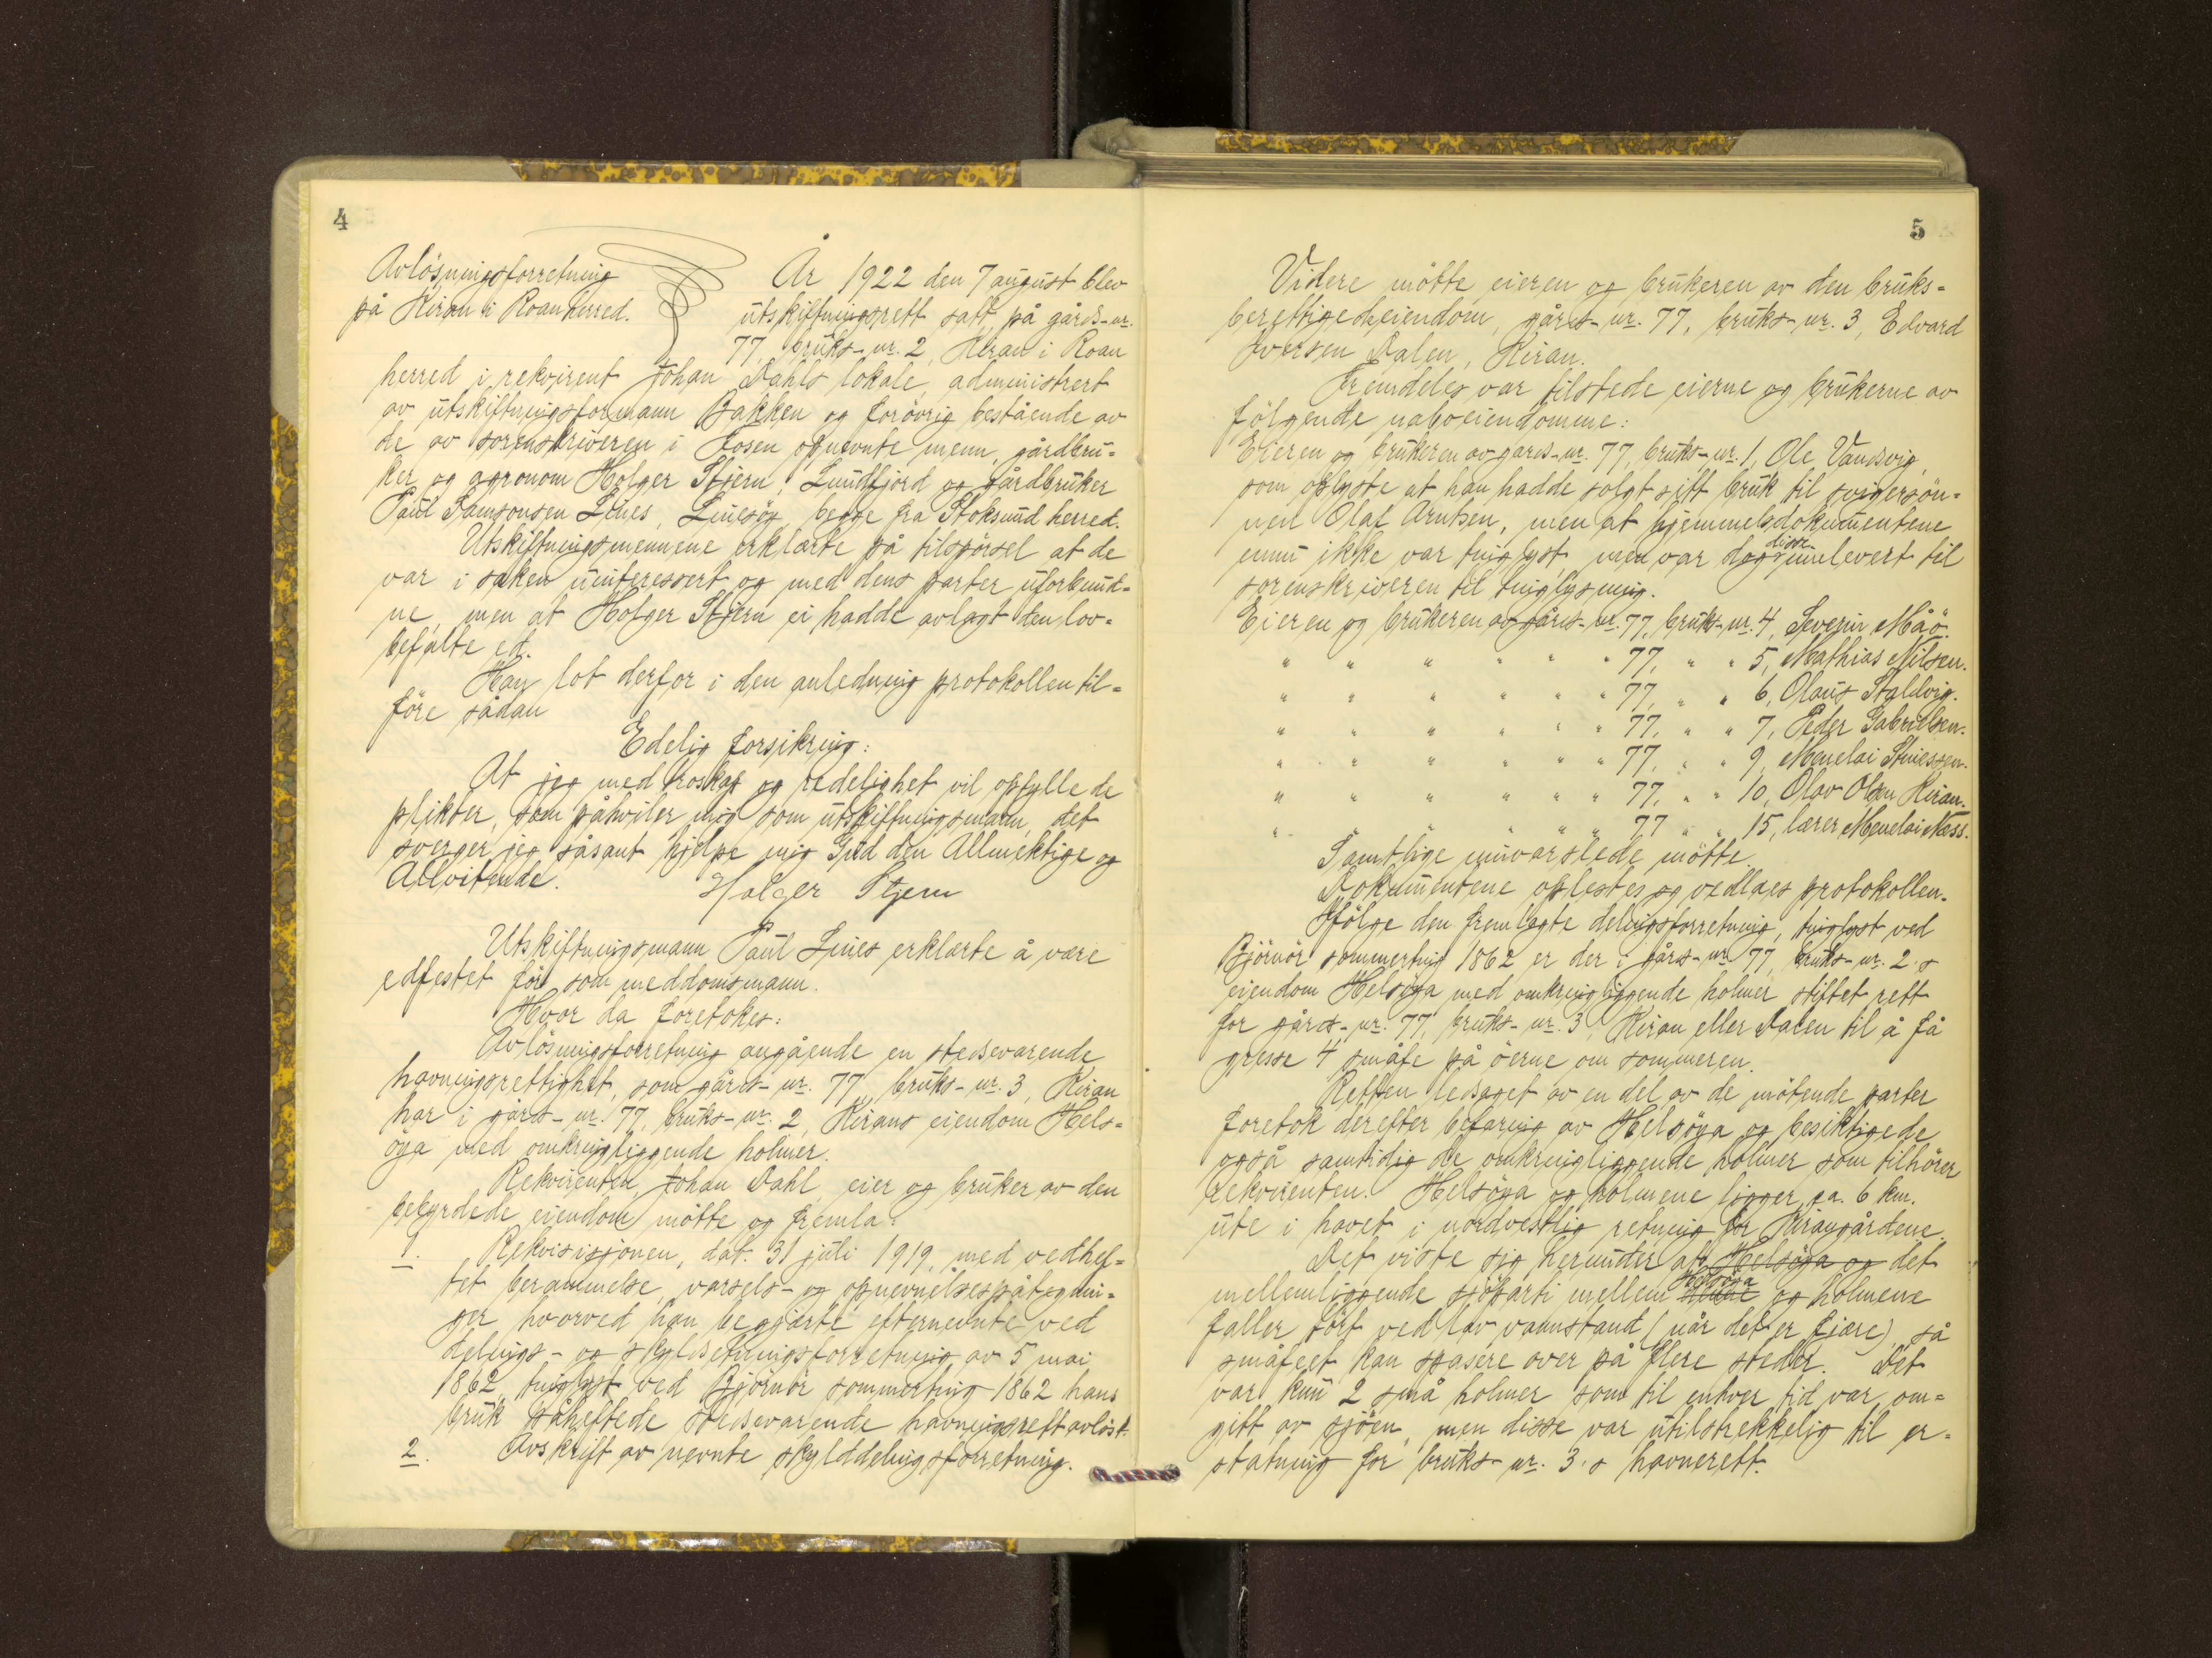 4
Avlösningsforretning
på Kiran i Roan herred.
År 1922 den 7 august blev
utskiftningsrett satt på gårds-nr.
77, bruks-nr. 2, Kiran i Roan
herred i rekvirent Johan Dahls lokale, administrert
av utskiftningsformann Bakken og forövrig bestående av
de av sorenskriveren i Fosen opnevnte menn, gårdbru=
ker og agronom Holger Stjern, Sundfjord og gårdbruker
Paul Samsonsen Lines, Linesöy, begge fra Stoksund herred.
Utskiftningsmennene erklærte på tilspörsel at de
var i saken uinteressert og med dens parter uforbund=
ne, men at Holger Stjern ei hadde avlagt den lov=
befalte ed.
Han lot derfor i den anledning protokollen til=
före sådan
Edelig forsikring:
At jeg med troskap og redelighet vil opfylle de
plikter, som påhviler mig som utskiftningsmann, det
sverger jeg såsant hjelpe mig Gud den Allmektige og
Allvitende.
Holger Stjern
Utskiftningsmann Paul Lines erklærte å være
edfestet för som meddomsmann.
Hvor da foretokes:
Avlösningsforretning angående en stedsevarende
havningsrettighet, som gårds-nr. 77, bruks-nr. 3, Kiran
har i gårds-nr. 77, bruks-nr. 2, Kirans eiendom Hels=
öya med omkringliggende holmer.
Rekvirenten, Johan Dahl, eier og bruker av den
beheftede eiendom mötte og fremla:
1. Rekvisisjonen, dat. 31 juli 1919, med vedhef=
tet berammelse, varsels- og opnevnelsespåtegnin=
ger, hvorved han begjærte efternevnte ved
delings- og skyldsetningsforretning av 5 mai
1862, tinglyst ved Björnör sommerting 1862 hans
bruk påheftede stedsevarende havningsrett avlöst.
2. Avskrift av nevnte skylddelingsforretning.
5
Videre mötte eieren og brukeren av den bruks=
berettigede eiendom, gårds-nr. 77, bruks-nr. 3, Edvard
Iversen Dalen, Kiran.
Fremdeles var tilstede eierne og brukerne av
fölgende naboeiendomme:
Eieren og brukeren av gards-nr. 77, bruks-nr. 1, Ole Vandsvig,
som oplyste at han hadde solgt sitt bruk til svigersön=
nen Olaf Arntsen, men at hjemmelsdokumentene
ennu ikke var tinglyst, men var dog disse innlevert til
sorenskriveren til tinglysning.
Eieren og brukeren av gårds-nr. 77, bruks-nr. 4, Severin Måö.
" " " " " " 77, " " 5, Mathias Nilsen.
" " " " " " 77, " " 6, Olaus Staldvig.
" " " " " " 77, " " 7, Peder Gabrielsen.
" " " " " " 77, " " 9, Menelai Stinessen.
" " " " " " 77, " " 10, Olav Olsen Kiran.
" " " " " " 77 " " 15, lærer Menelai Næss.
Samtlige innvarslede mötte.
Dokumentene oplestes og vedlaes protokollen.
Ifölge den fremlagte delingsforretning, tinglyst ved
Björnör sommerting 1862 er der i gårds-nr. 77, bruks-nr. 2's
eiendom Helsöya med omkringliggende holmer stiftet rett
for gårds-nr. 77, bruks-nr. 3, Kiran eller Dalen til å få
gresse 4 småfe på öerne om sommeren.
Retten ledsaget av en del av de mötende parter
foretok derefter befaring av Helsöya og besiktigede
også samtidig de omkringliggende holmer som tilhörer
rekvirenten. Helsöya og holmene ligger ca. 6 km.
ute i havet i nordvestlig retning for Kirangårdene.
Det viste sig herunder at Helsöya og det
mellemliggende sjöparti mellem Helsöya og holmene
faller tört ved lav vannstand (når det er fjære), så
småfeet kan spasere over på flere steder. Det
var kun 2 små holmer som til enhver tid var om=
gitt av sjöen, men disse var utilstrekkelig til er=
statning for bruks-nr. 3's havnerett.